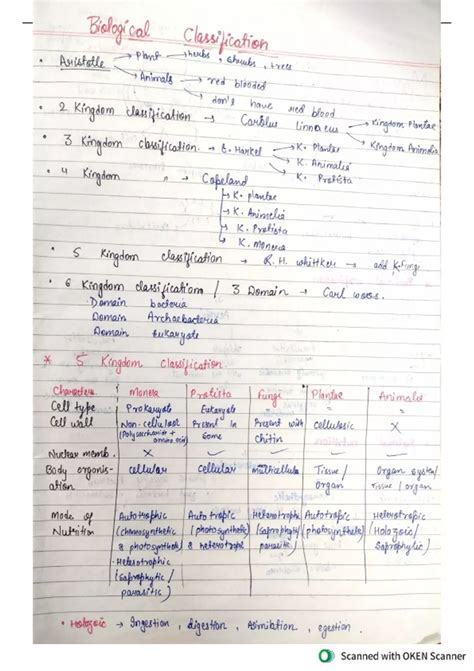 Biological Classification
• Aristotle → Plant → herbs, shrubs, trees
→ Animals → red blooded
→ don't have red blood
• 2 Kingdom classification → Carolus linnaeus → Kingdom Plantae
→ Kingdom Animalia
• 3 Kingdom classification → E. Harkel → K. Plantae
→ K. Animalia
→ K. Protista
• 4 Kingdom " → Copeland
→ K. plantae
→ K. Animelia
→ K. Protista
→ K. monera
• 5 Kingdom classification → R.H. whittker → add K.fungi
• 6 Kingdom classification / 3 Domain → Carl woos.
Domain bacteria
Domain Archaebacteria
Domain Eukaryote
* 5 Kingdom classification
Characters Monera Protista Fungi Plantae Animalia
Cell type Prokaryote Eukaryote " " "
Cell wall Non-cellulosic (Polysaccharides + amino acid) Present in some Present with chitin Cellulosic X
Nuclear memb. X ✓ ✓ ✓ ✓
Body organisation cellular cellular multicellular Tissue/organ Organ system/Tissue/organ
Mode of Nutrition Autotrophic (chemosynthetic & photosynthetic) • Heterotrophic (saprophytic/parasitic) Autotropic (photosynthetic) & heterotrop Heterotrophic (saprophytic/parasitic) Autotropic (photosynthetic) Heterotrophic (Holozoic/Saprophytic)
• Holozoic → Ingestion, digestion, Asimilation, egestion.
Scanned with OKEN Scanner